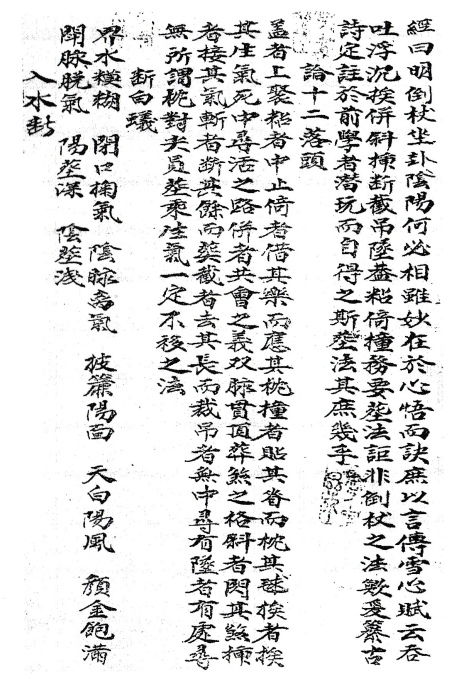 經曰明倒杖坐卦陰陽何必相雖妙在於心悟而訣庶以言傳雪心賦云吞
吐浮沉挨併斜插斷截吊墜蓋粘倚撞務要塟法詎非倒杖之法歟爰纂古
詩定註於前學者潛玩而自得之斯塟法其庶幾乎
論十二落頭
蓋者上聚粘者中止倚者借其樂而應其枕撞者貼其脊而枕其毬挨者挨
其生氣死中尋活之路併者共會之義双脉貫頂葬煞之格斜者閃其煞插
者接其氣斬者断其餘而塟截者去其長而裁吊者無中尋有墜者有處尋
無所謂枕對夫員塟乘生氣一定不移之法
断白蟻
界水模糊 閉口掬氣 陰脉离氣 披簾陽面 天白陽風 顏金飽滿
開脉脱氣 陽塟深 陰塟浅
入水断